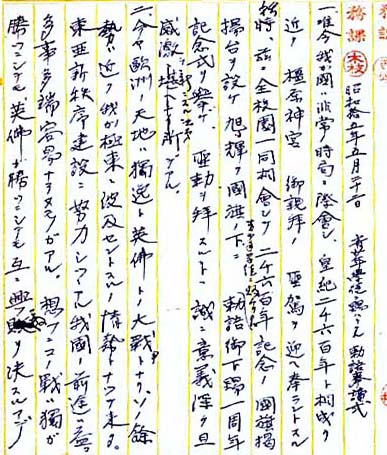 務課 本校 昭和十五年五月二十二日 青少年學徒ニ 勅語奉讀式
一、唯今我ガ國ハ非常ノ時局ニ際會シ、皇紀二千六百年ト相成リ
近ク橿原神宮御親拜ノ聖駕ヲ迎ヘ奉ラントスル
時、茲ニ全校團一同相會シテ二千六百年記念ノ國旗掲
揚台ヲ設ケ旭ノ輝ク國旗ノ下ニ 勅語御下賜一周年
記念式ヲ擧ゲ 聖勅ヲ拜スルコト誠ニ意義深ク且
感激ニ堪ヘヌ所デアル。
二、今ヤ歐洲ノ天地ハ獨逸ト英佛トノ大戰トナリ、ソノ餘
勢ヒ近ク我ガ極東ニ波及セントスルノ情勢トナツテ来タ。
東亞新秩序建設ニ努力シツツアル我國ノ前途ハ益々
多事多端 ガアル。想フニコノ戰ハ獨ガ
勝ツニシテモ英佛ガ勝ツニシテモ互ニ興敗ヲ決スルマデ